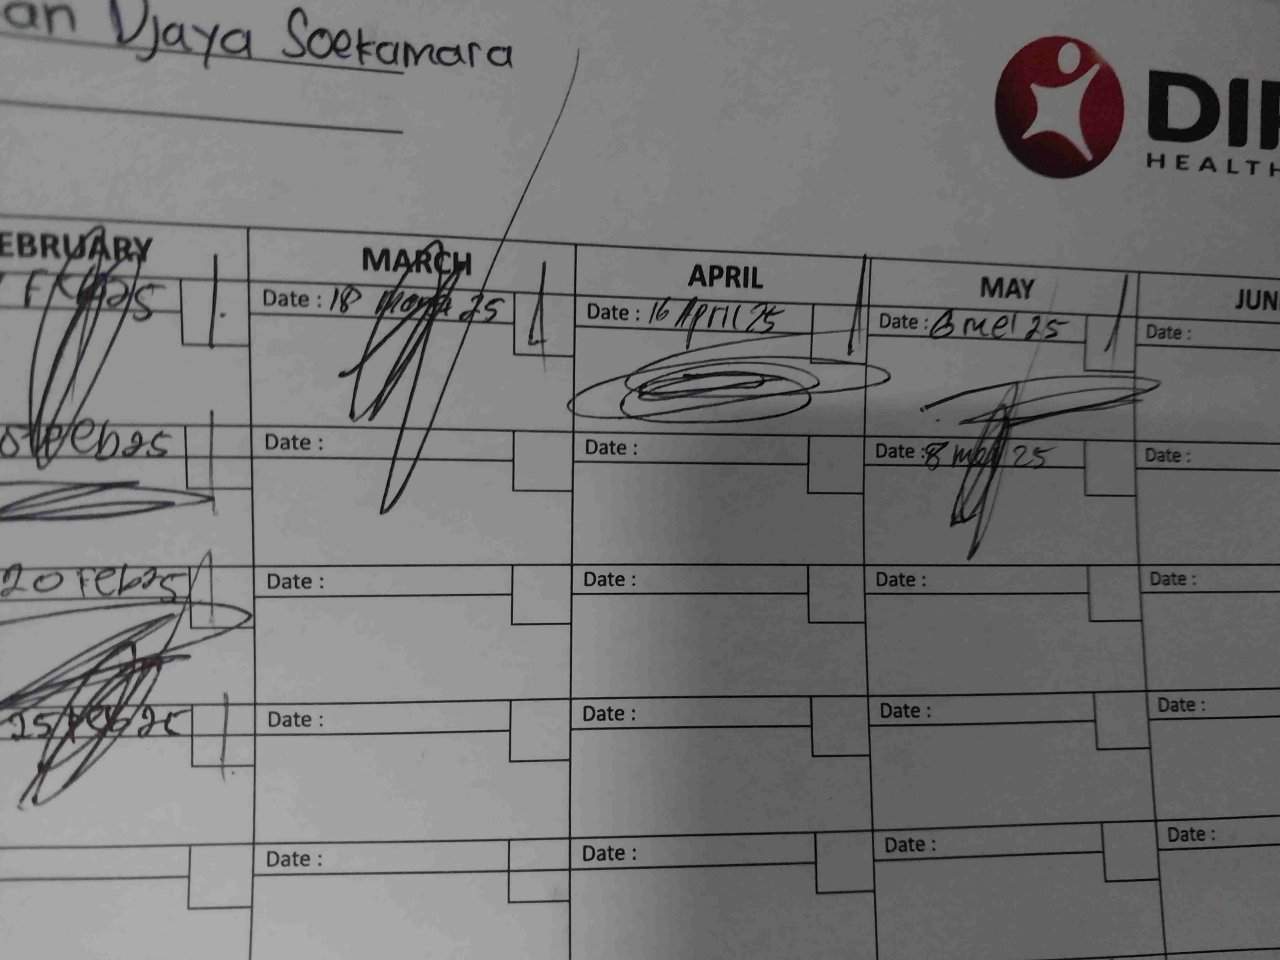 an Djaya Soekamara
DIP
HEALTH
EBRUARY
MARCH
APRIL
MAY
JUN
Date : 18 25
Date : 16 April 25
Date : 6 mei 25
Date :
05 Feb 25
Date :
Date :
Date : 8 mei 25
Date :
20 Feb 25
Date :
Date :
Date :
Date :
25 Feb 25
Date :
Date :
Date :
Date :
Date :
Date :
Date :
Date :